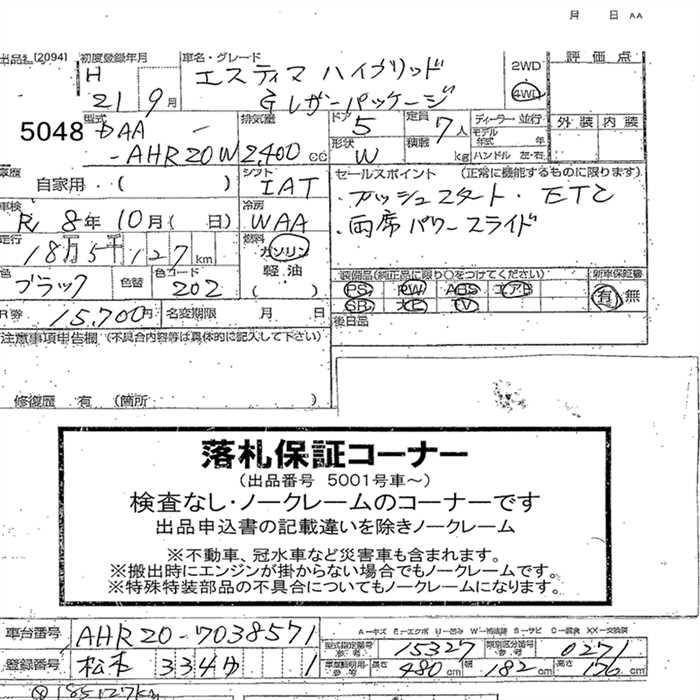 月 日 AA
出品 [2094] 初度登録年月 車名・グレード 評価点
H 21 9月 エスティマ ハイブリッド 2WD
Gレザーパッケージ 4WD
5048 型式 排気量 ドア 5 定員 7人 ディーラー・並行 外装 内装
DAA 形状 積載 モデル年式 年
-AHR20W 2,400cc W kg ハンドル 左・右
車歴 自家用・( ) シフト IAT セールスポイント (正常に機能するものに限ります)
車検 R 8年10月( 日) 冷房 WAA ・プッシュスタート・ETC
走行 18万5千127km 燃料 ガソリン ・両席パワースライド
色 ブラック 色替 色コード 202 軽油 ( ) 装備品(純正品に限り〇をつけてください) 新車保証書
PS PW ABS エアB 有 無
R券 15,700円 名変期限 月 日 SR TV
後日品
注意事項申告欄(不具合内容等は具体的に記入して下さい)
修復歴 有 (箇所 )
落札保証コーナー
(出品番号 5001号車〜)
検査なし・ノークレームのコーナーです
出品申込書の記載違いを除きノークレーム
※不動車、冠水車など災害車も含まれます。
※搬出時にエンジンが掛からない場合でもノークレームです。
※特殊特装部品の不具合についてもノークレームになります。
A−キズ E−エクボ U−凹み W−補修跡 S−サビ C−腐食 XX−交換済
車台番号 AHR20-7038571 型式指定番号 15327 類別区分番号 0271
登録番号 松本 334 ゆ 1 長さ 480cm 幅 182cm 高さ 176cm
185127km